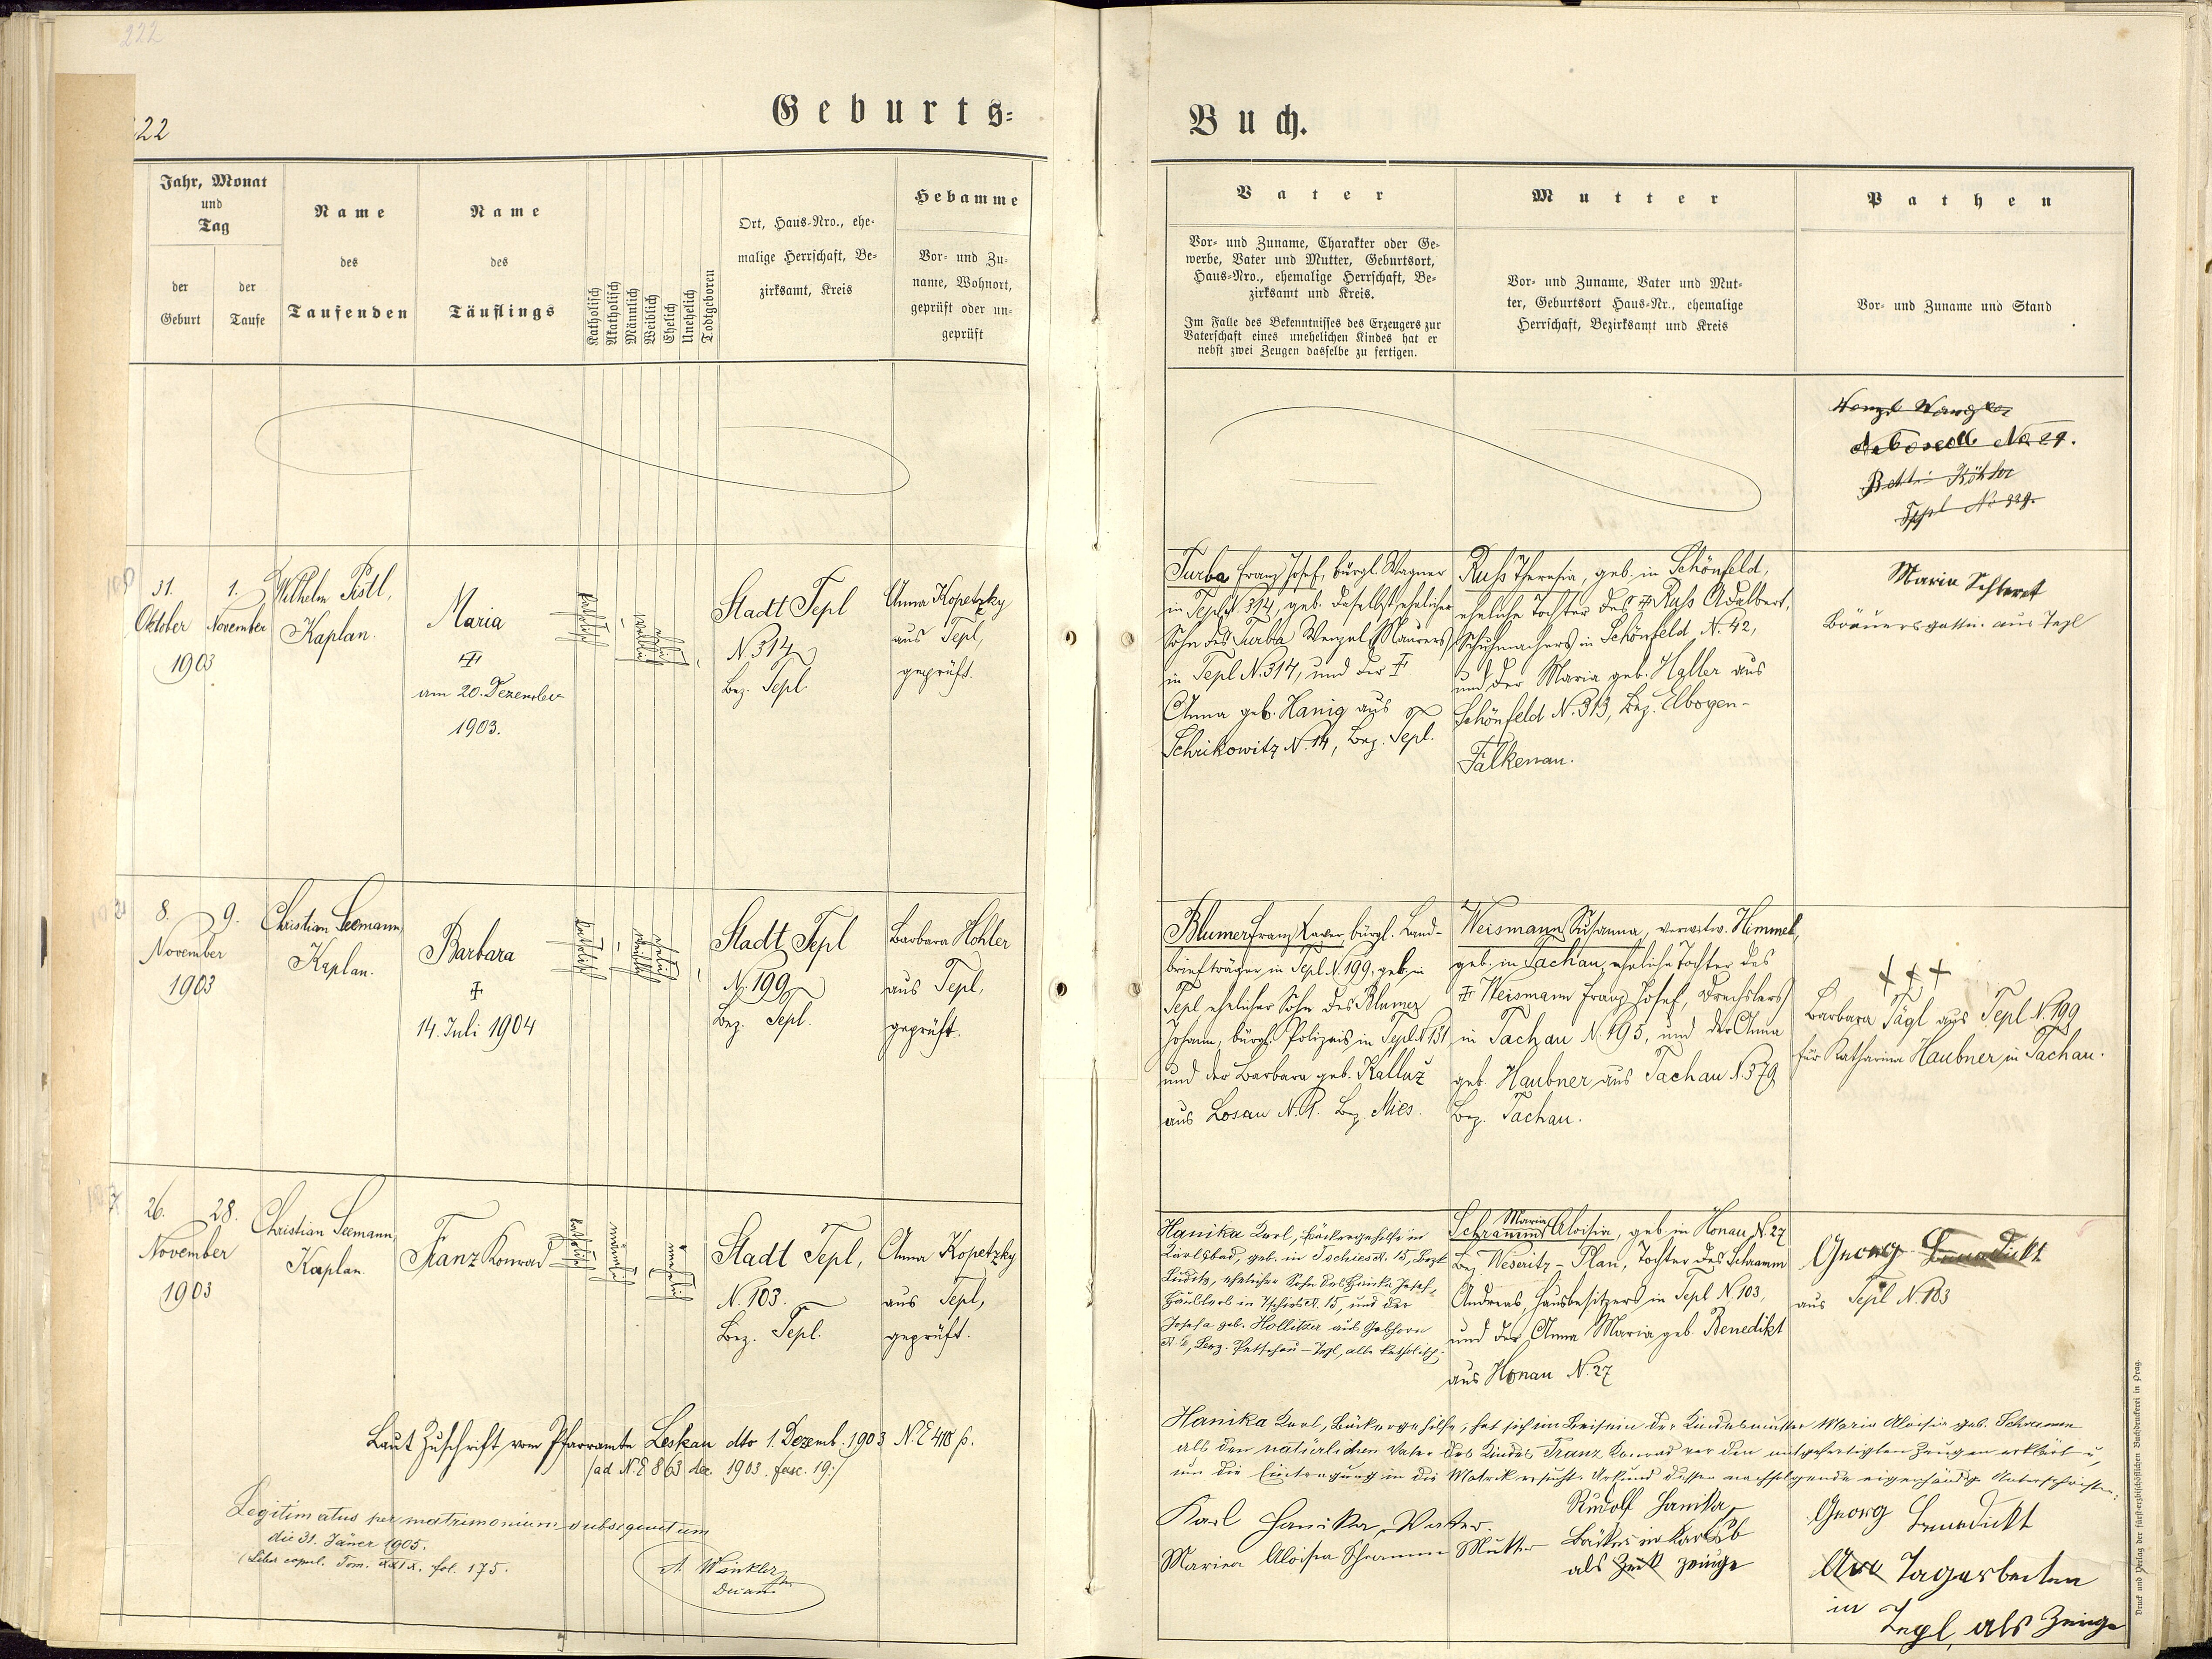 222
222
Geburts=
Jahr, Monat
und
Tag
der
Geburt
der
Taufe
Name
des
Taufenden
Name
des
Täuflings
Katholisch
Akatholisch
Männlich
Weiblich
Ehelich
Unehelich
Todtgeboren
Ort, Haus-Nro., ehe-
malige Herrschaft, Be-
zirksamt, Kreis
Hebamme
Vor- und Zu-
name, Wohnort,
geprüft oder un-
geprüft
31.
Oktober
1903
1.
November
Wilhelm Pistl,
Kaplan.
Maria
am 20. Dezember
1903.
katholisch
weiblich
ehelich
Stadt Tepl
N. 314
Bez. Tepl.
Anna Kopetzky
aus Tepl,
geprüft.
8.
9.
November
1903
Christian Seemann,
Kaplan.
Barbara
14. Juli 1904
katholisch
weiblich
ehelich
Stadt Tepl
N. 199
Bez. Tepl.
Barbara Hohler
aus Tepl,
geprüft.
26.
28.
November
1903
Christian Seemann,
Kaplan.
Franz Konrad
katholisch
männlich
unehelich
Stadt Tepl,
N. 103.
Bez. Tepl.
Anna Kopetzky
aus Tepl,
geprüft.
Laut Zuschrift vom Pfarramte Leskau dto 1. Dezemb. 1903 N. E 418 p.
/ad N. E 863 de 1903. fasc. 19:/
Legitimatus per matrimonium subsequutum
die 31. Jäner 1905.
(Liber copul. Tom. XXIX. fol. 175.
A. Winkler
Dechant
Buch.
Vater
Vor- und Zuname, Charakter oder Ge-
werbe, Vater und Mutter, Geburtsort,
Haus-Nro., ehemalige Herrschaft, Be-
zirksamt und Kreis.
Im Falle des Bekenntnisses des Erzeugers zur
Vaterschaft eines unehelichen Kindes hat er
nebst zwei Zeugen dasselbe zu fertigen.
Mutter
Vor- und Zuname, Vater und Mut-
ter, Geburtsort Haus-Nr., ehemalige
Herrschaft, Bezirksamt und Kreis
Pathen
Vor- und Zuname und Stand
No 29.
Köhler
Tepl No 339.
Turba Franz Josef, bürgl. Wagner
in Tepl N. 314, geb. daselbst, ehelicher
Sohn des Turba Wenzel, Maurers
in Tepl N. 314, und der
Anna geb. Hanig aus
Schrikowitz N. 14, Bez. Tepl.
Russ Theresia, geb. in Schönfeld,
eheliche Tochter des Russ Adalbert,
Schuhmachers in Schönfeld N. 42,
und der Maria geb. Haller aus
Schönfeld N. 313, Bez. Elbogen-
Falkenau.
Maria
Bräuersgattin aus Tepl
Blumer Franz Xaver, bürgl. Land-
briefträger in Tepl N. 199, geb. in
Tepl ehelicher Sohn des Blumer
Johann, bürgl. Polizeis in Tepl N. 151
und der Barbara geb. Kalluz
aus Losau N. 1. Bez. Mies.
Weismann Susanna, verwitw. Himmel,
geb. in Tachau, eheliche Tochter des
Weismann Franz Josef, Drechslers
in Tachau N. 195, und der Anna
geb. Haubner aus Tachau N. 379
Bez. Tachau.
Barbara Tägl aus Tepl N. 199
für Katharina Haubner in Tachau.
Hanika Karl, Bäckergehilfe in
Karlsbad, geb. in Tschies N. 15, Bezk
Luditz, ehelicher Sohn des Hanika Josef,
Häuslers in Tschies N. 15, und der
Josefa geb. Hollitzer aus Gabhorn
Bez. Petschau-Tepl, alle katholisch.
Maria
Schramm Aloisia, geb. in Honau N. 27
Bez. Weseritz-Plan, Tochter des Schramm
Andreas, Hausbesitzers in Tepl N. 103,
und der Anna Maria geb. Benedikt
aus Honau N. 27
Georg Benedikt
aus Tepl N. 103
Hanika Karl, Bäckergehilfe, hat sich im Beisein der Kindesmutter Maria Aloisia geb. Schramm
als den natürlichen Vater des Kindes Franz Konrad vor den mitgefertigten Zeugen erklärt u.
um die Eintragung in die Matrik ersucht. Urkund dessen nachfolgende eigenhändige Unterschriften:
Karl Hanika Vater.
Mariea Aloisia Schramm Mutter
Rudolf Hanika
Bäcker in Karlsb
als Zeuge
Georg Benedickt
Tagarbeiten
in
Tepl, als Zeuge
Druck und Verlag der fürsterzbischöflichen Buchdruckerei in Prag.